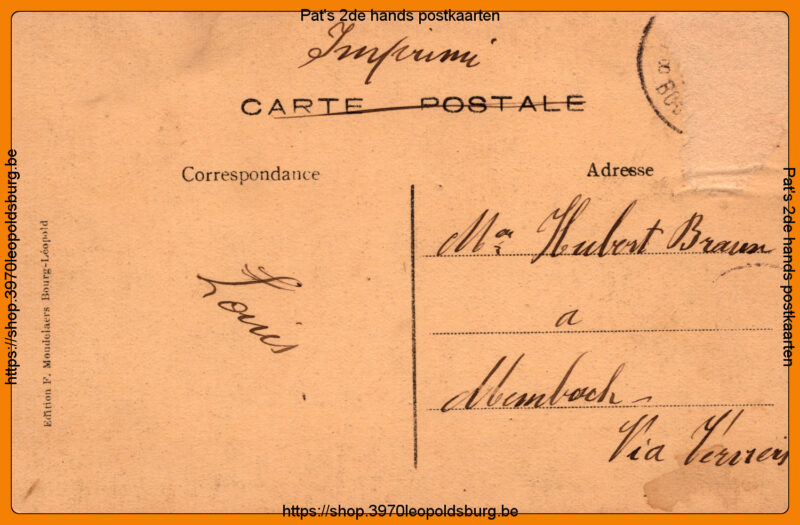 Pat's 2de hands postkaarten
Imprimé
CARTE POSTALE
8 BOU
Correspondance
Adresse
Mr Hubert Braun
a
Membach
Via Verviers
Louis
Edition F. Mondelaers Bourg-Léopold
https://shop.3970leopoldsburg.be
Pat's 2de hands postkaarten
https://shop.3970leopoldsburg.be